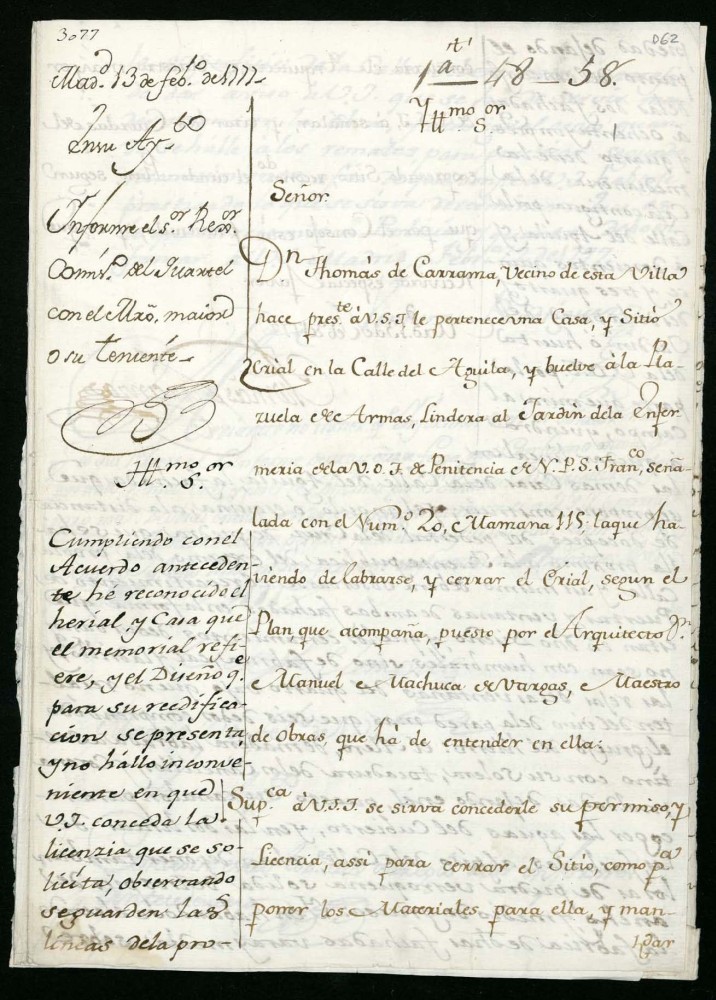 3077
D62
Mad.d 13 de feb.ro de 1777
1a 48 - 58.
Yll.mo S.or
en su Ay.to
Informe el s.or Rex.or
Comis.o del Quartel
con el Mro. maior
o su teniente
Yll.mo S.or
Cumpliendo con el
Acuerdo anteceden-
te hé reconocido el
herial, y Casa que
el memorial refi-
ere, y el Diseño q.e
para su redifica-
cion se presenta,
y no hállo inconve-
niente en que
V.I. conceda la
licenzia que se so-
licita, observando
se guarden las
líneas de la pro-
Señor
Dn. Thomás de Carrama, Vecino de esta Villa
hace pres.te á V.S.I. le pertenece una Casa, y Sitio
Erial en la Calle del Aguila, y buelve à la Pla-
zuela de Armas, Lindera al Jardin de la Enfer
meria de la V.O.T. de Penitencia de N.P.S. Fran.co, seña-
lada con el Num.o 20, Manzana 115; la que ha-
viendo de labrarse, y cerrar el Erial, segun el
Plan que acompaña, puesto por el Arquitecto D.n
Manuel Machuca de Vargas, Maestro
de Obras, que hà, de entender en ella:
Sup.ca à V.S.I. se sirva concederle su permiso, y
Licencia, assi para cerrar el Sitio, como p.a
poner los Materiales para ella, y man-
dar